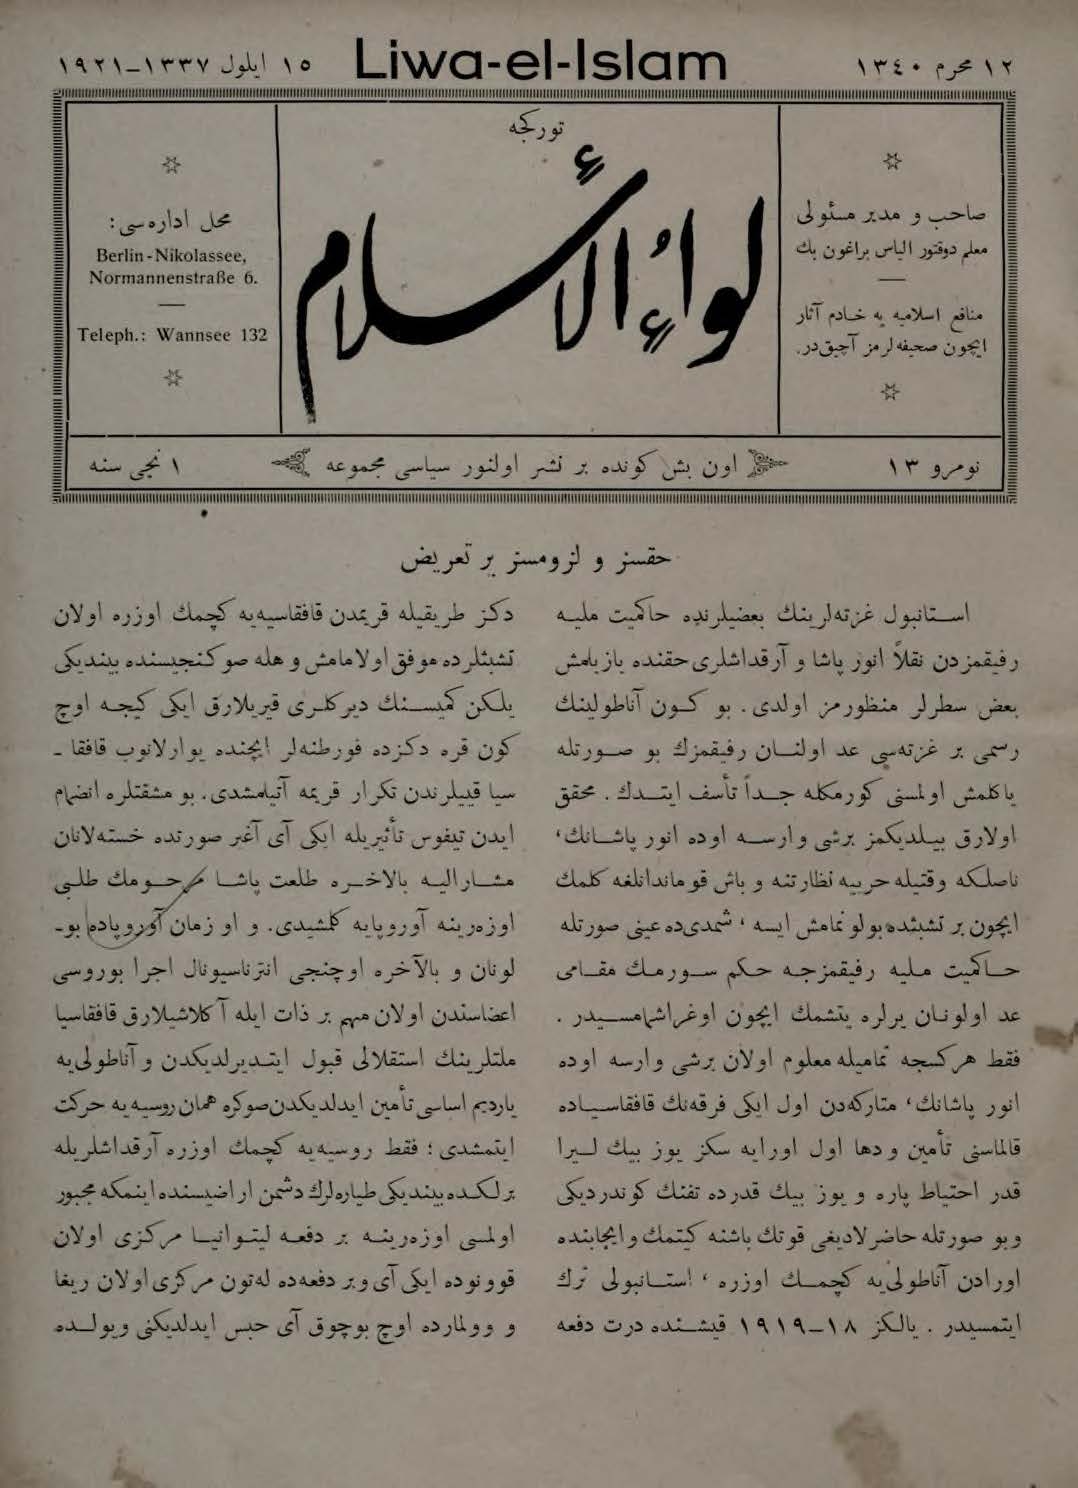 ١٢ محرم ١٣٤٠
Liwa-el-Islam
١٥ ايلول ١٣٣٧–١٩٢١
صاحب و مدير مسئولى
معلم دوقتور الياس براغون بك
منافع اسلاميه يه خادم آثار
ايچون صحيفه لرمز آچيق در.
توركجه
لواء الأسلام
محل اداره سى:
Berlin-Nikolassee,
Normannenstraße 6.
Teleph.: Wannsee 132
نومرو ١٣
اون بش كونده بر نشر اولنور سياسى مجموعه
١ نجى سنه
حقسز و لزومسز بر تعريض
استانبول غزته لرينك بعضيلرنده حاكميت مليه
رفيقمزدن نقلاً انور پاشا و آرقداشلرى حقنده يازيلمش
بعض سطرلر منظورمز اولدى. بو كون آناطولينك
رسمى بر غزته سى عد اولنان رفيقمزك بو صورتله
ياكلمش اولمسنى كورمكله جداً تأسف ايتدك. محقق
اولارق بيلديكمز برشى وارسه اوده انور پاشانك،
ناصلكه وقتيله حربيه نظارتنه و باش قوماندانلغه كلمك
ايچون بر تشبثده بولونمامش ايسه، شمدى ده عينى صورتله
حاكميت مليه رفيقمزجه حكم سورمك مقامى
عد اولونان يرلره يتشمك ايچون اوغراشمامسيدر.
فقط هركسجه تماميله معلوم اولان برشى وارسه اوده
انور پاشانك، متاركه دن اول ايكى فرقه نك قافقاسياده
قالماسنى تأمين و دها اول اورايه سكز يوز بيك ليرا
قدر احتياط پاره و يوز بيك قدرده تفنك كوندرديكى
وبو صورتله حاضرلاديغى قوتك باشنه كيتمك وايجابنده
اورادن آناطولى يه كچمك اوزره، استانبولى ترك
ايتمسيدر. يالكز ١٨–١٩١٩ قيشنده درت دفعه
دكز طريقيله قريمدن قافقاسيه يه كچمك اوزره اولان
تشبثلرده موفق اولامامش و هله صوكنجيسنده بينديكى
يلكن كميسنك ديركلرى قيريلارق ايكى كيجه اوچ
كون قره دكزده فورطنه لر ايچنده يوارلانوب قافقا -
سيا قييلرندن تكرار قريمه آتيلمشدى. بو مشقتلره انضمام
ايدن تيفوس تأثيريله ايكى آى آغير صورتده خسته لانان
مشاراليه بالاخره طلعت پاشا مرحومك طلبى
اوزه رينه آوروپايه كلمشيدى. و او زمان آوروپاده بو-
لونان و بالآخره اوچنجى انترناسيونال اجرا بوروسى
اعضاسندن اولان مهم بر ذات ايله آكلاشيلارق قافقاسيا
ملتلرينك استقلالى قبول ايتديرلديكدن و آناطولى يه
ياردیم اساسى تأمين ايدلديكدن صوكره همان روسيه يه حركت
ايتمشدى؛ فقط روسيه يه كچمك اوزره آرقداشلريله
برلكده بينديكى طياره لرك دشمن اراضيسنده اينمكه مجبور
اولمسى اوزه رينه بر دفعه ليتوانيا مركزى اولان
قوونوده ايكى آى وبر دفعه ده له تون مركزى اولان ريغا
و وولمارده اوچ بوچوق آى حبس ايدلديكنى ويولده